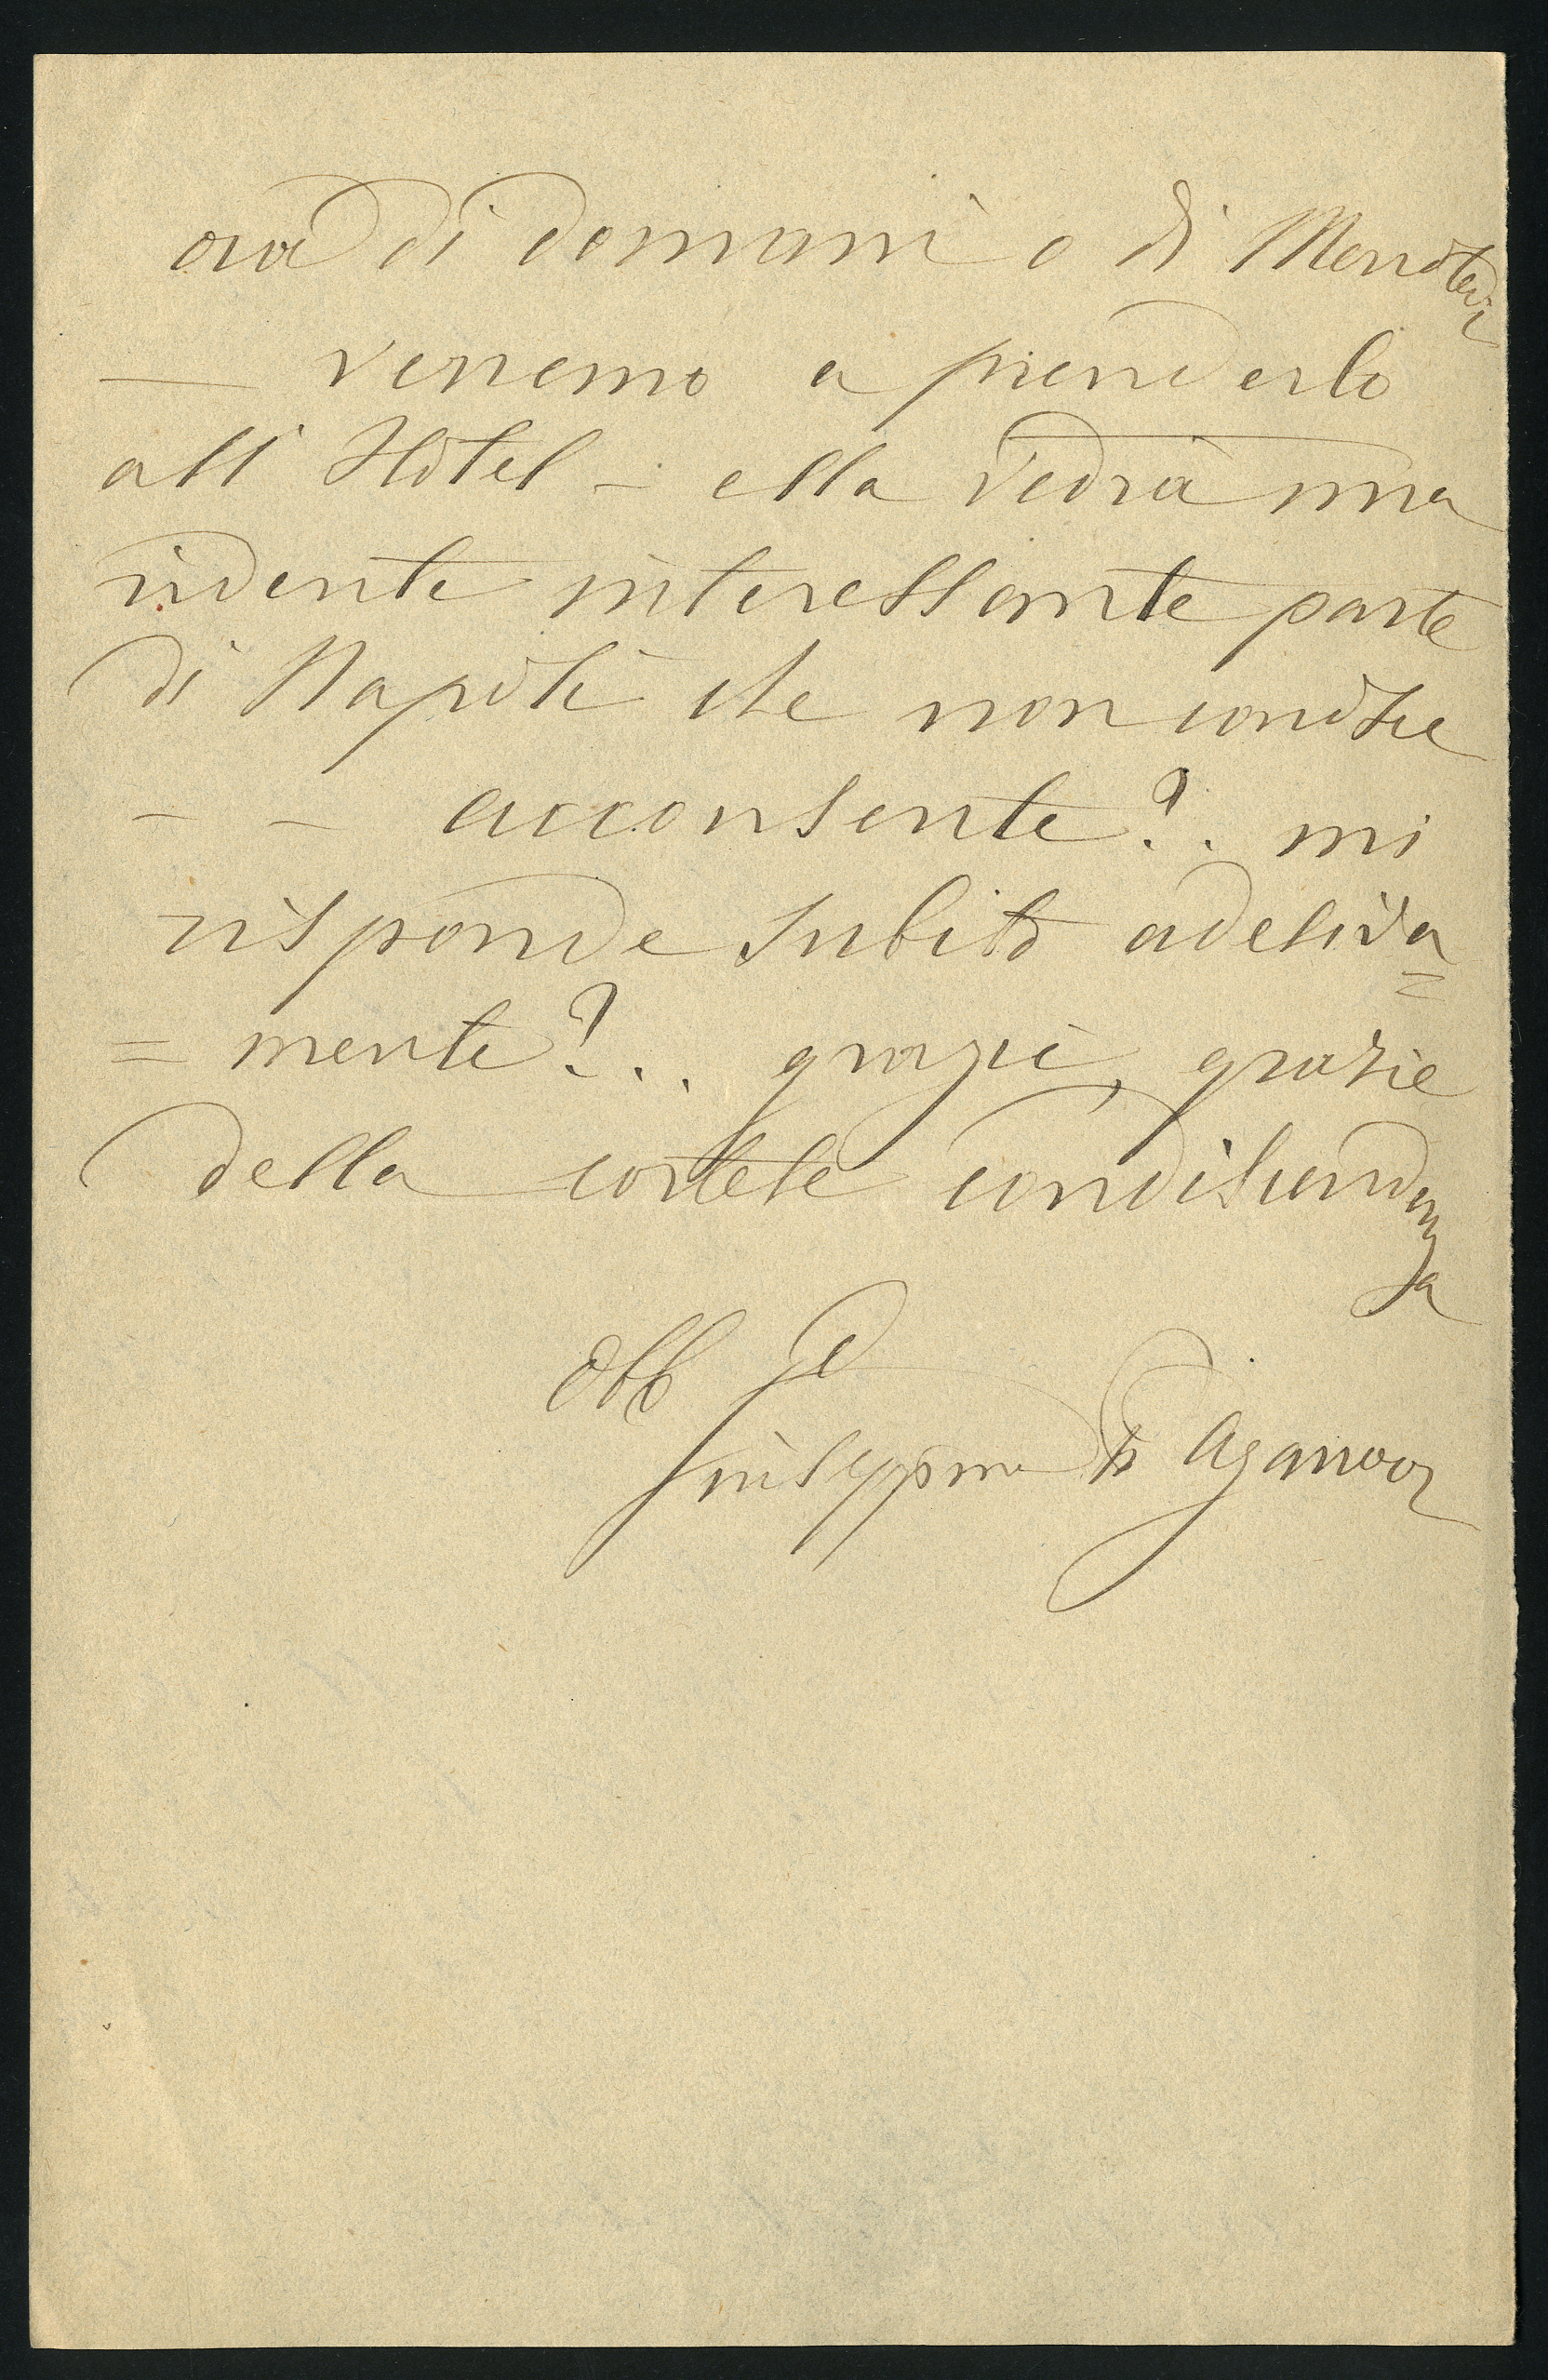 ora di domani o di Mercoledì
— verremo a prenderlo
all' Hôtel - ella vedrà una
ridente interessante parte
di Napoli che non conosce
- - acconsente?.. mi
risponde subito adesiva=
=mente?... grazie, grazie
della cortese condiscendenza
Obb
Giuseppina Aganoor